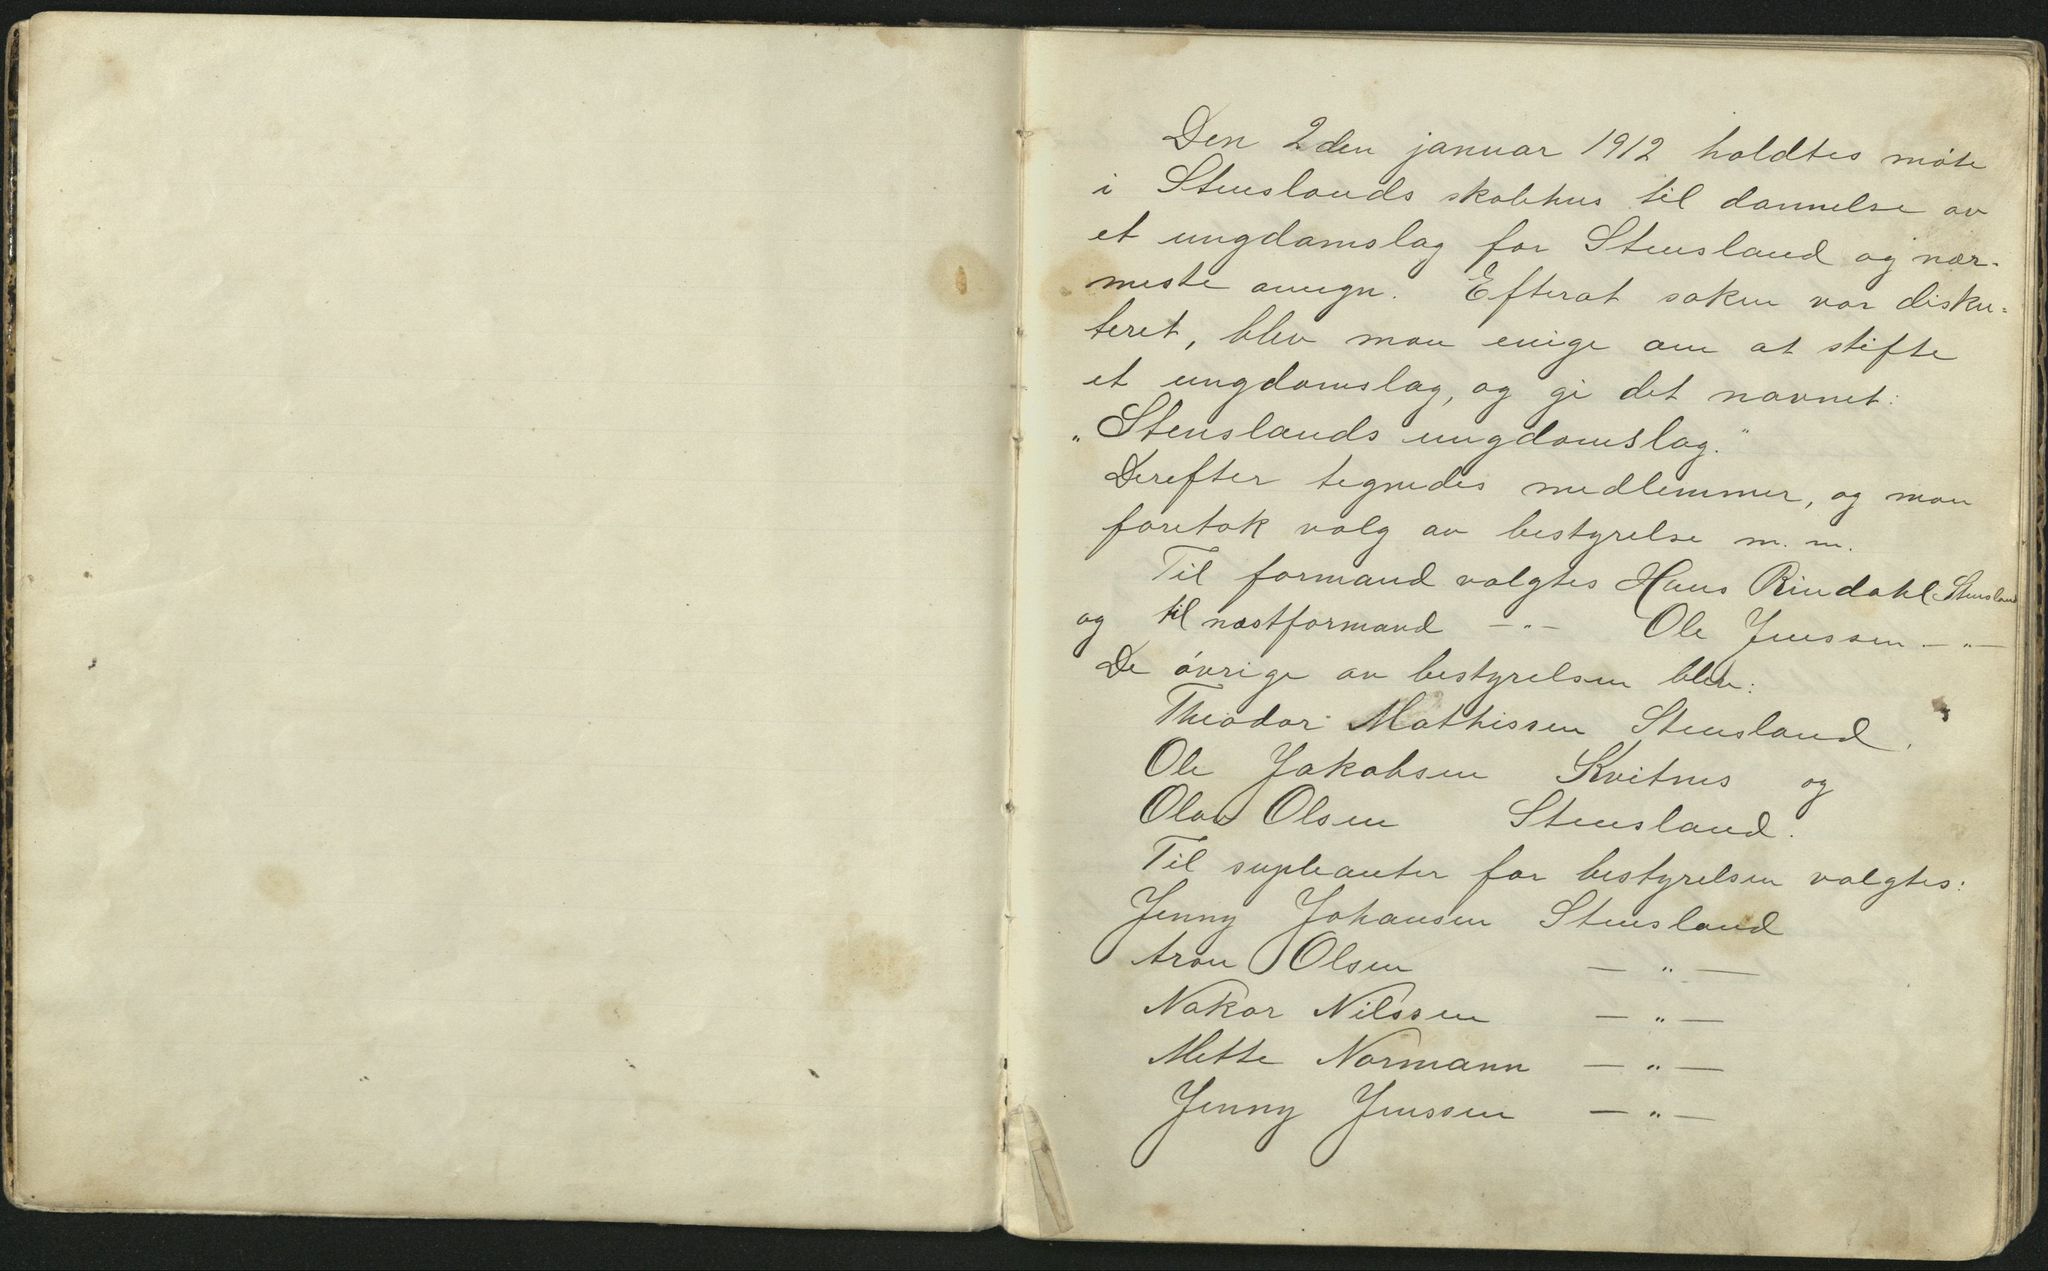 Den 2den januar 1912 holdtes møte
i Stenslands skolehus til dannelse av
et ungdomslag for Stensland og nær-
meste omegn. Efterat saken var disku-
teret, blev man enige om at stifte
et ungdomslag, og gi det navnet:
„Stenslands ungdomslag."
Derefter tegnedes medlemmer, og man
foretok valg av bestyrelse m. m.
Til formand valgtes Hans Rindahl Stensland
og til næstformand — " — Ole Jenssen — " —
De øvrige av bestyrelsen blev:
Theodor Mathissen Stensland,
Ole Jakobsen Kvitnes og
Olav Olsen Stensland.
Til supleanter for bestyrelsen valgtes:
Jenny Johansen Stensland
Aron Olsen — " —
Nakor Nilssen — " —
Mette Normann — " —
Jenny Jenssen — " —